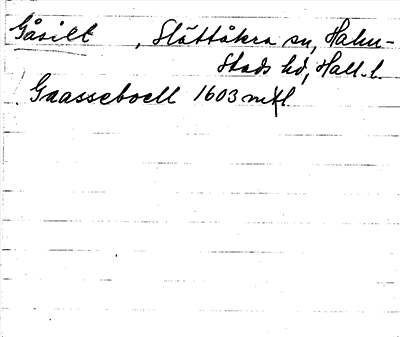 Gåsilt , Slättåkra sn, Halm-
stads hd, Hall. l.
Gaasseboell 1603 mtl